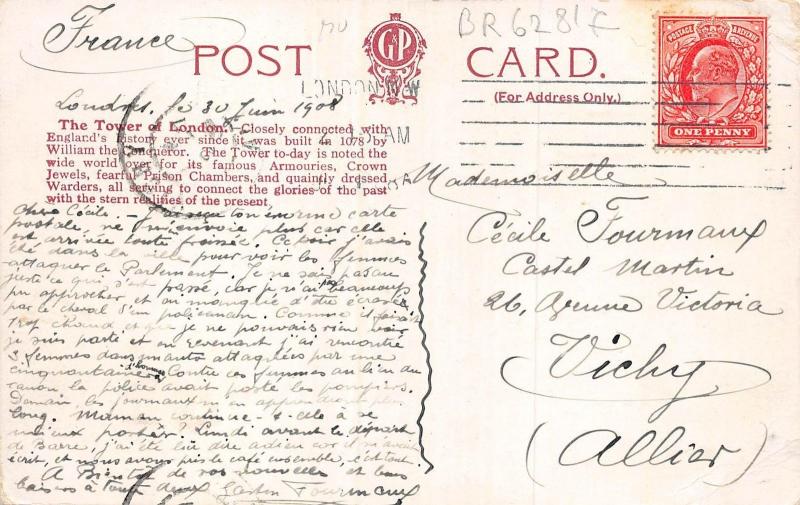 France
BR 6281F
POST
G&P
CARD.
(For Address Only.)
POSTAGE REVENUE
ONE PENNY
LONDON W
AM
Londres, le 30 Juin 1908
The Tower of London. Closely connected with
England's history ever since it was built in 1078 by
William the Conqueror. The Tower to-day is noted the
wide world over for its famous Armouries, Crown
Jewels, fearful Prison Chambers, and quaintly dressed
Warders, all serving to connect the glories of the past
with the stern realities of the present.
Chère Cécile. — J'ai reçu ton énorme carte
postale, ne m'envoie plus car elle
est arrivée toute froissée. Ce soir j'avais
été dans la ville pour voir les femmes
attaquer le Parlement. Je ne sais pas au
juste ce qui s'est passé, car je n'ai pas beaucoup
pu approcher, et ai manqué d'être écrasé
par le cheval d'un policeman. Comme il faisait
trop chaud et que je ne pouvais rien voir
je suis parti et en revenant j'ai rencontré
3 femmes attaquées par une
cinquantaine d'hommes Contre ces femmes au lieu du
canon la police avait posté les pompiers.
Demain, les journaux m'en apprendront plus
long. Maman continue-t-elle à se
mieux porter? Lundi avant le départ
de Barre, j'ai été lui dire adieu car il m'avait
écrit, et nous avons pris le café ensemble, c'est tout.
A Bientôt de vos nouvelles et bons
baisers à toute deux Gaston Fourmaux
Mademoiselle
Cécile Fourmaux
Castel Martin
26, Avenue Victoria
Vichy
(Allier)